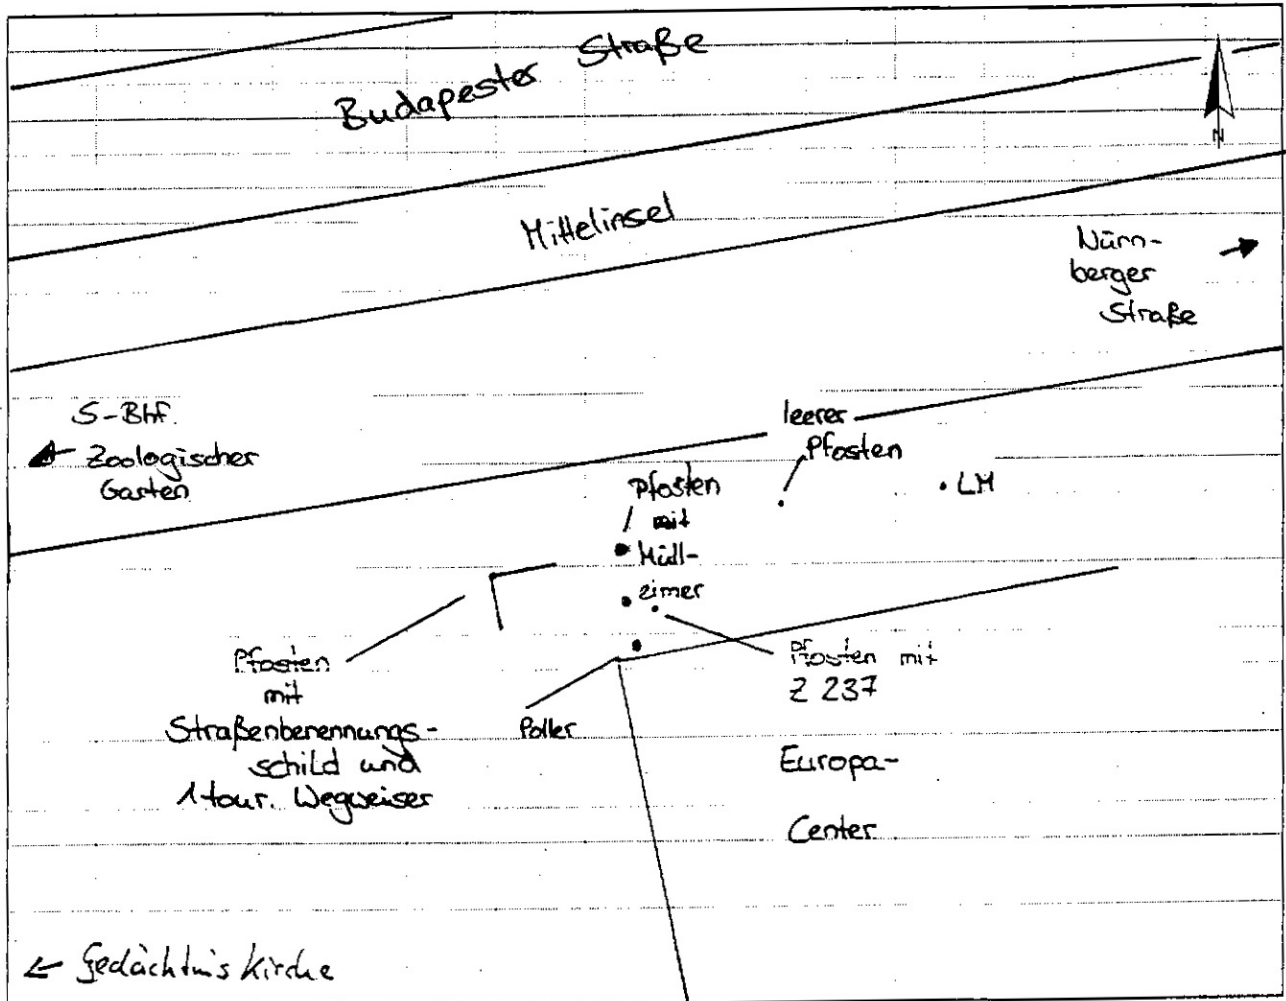 Budapester Straße
N
Mittelinsel
Nürn-
berger
Straße
S-Bhf.
Zoologischer
Garten
leerer
Pfosten
LM
Pfosten
mit
Müll-
eimer
Pfosten
mit
Straßenbenennungs-
schild und
1 tour. Wegweiser
Poller
Pfosten mit
Z 237
Europa-
Center
← Gedächtniskirche